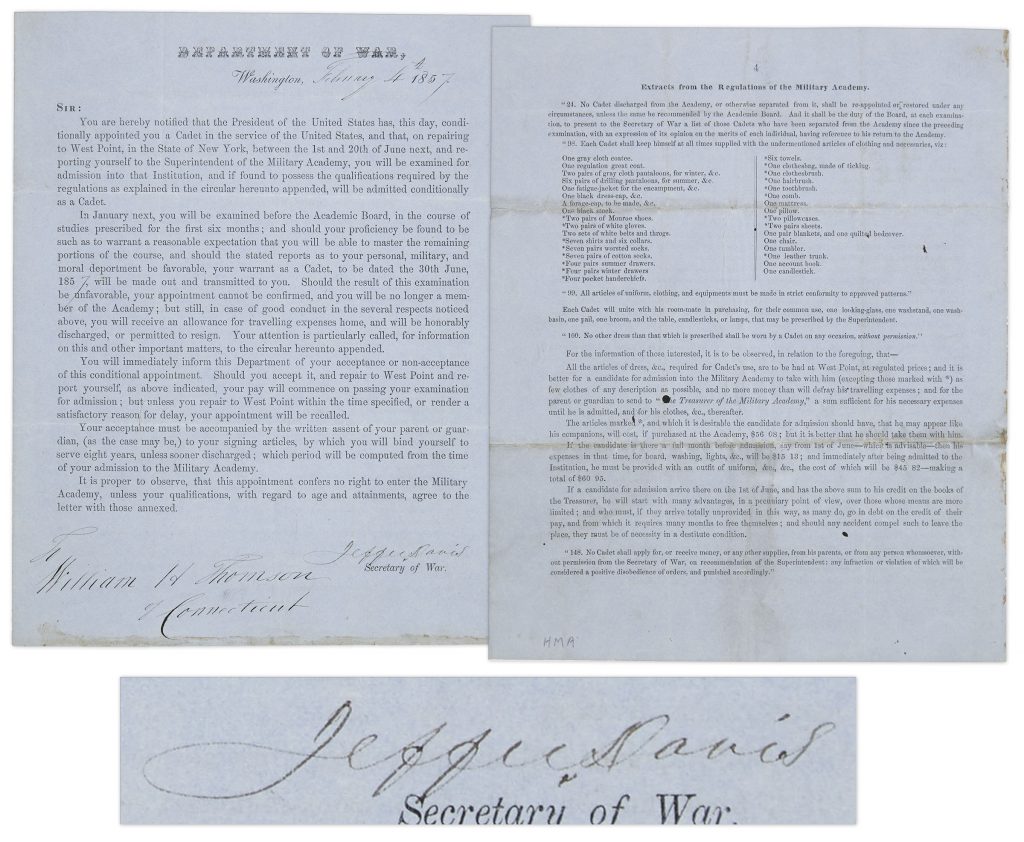 DEPARTMENT OF WAR,
Washington, February 4th 1857.
SIR:
You are hereby notified that the President of the United States has, this day, condi-
tionally appointed you a Cadet in the service of the United States, and that, on repairing
to West Point, in the State of New York, between the 1st and 20th of June next, and re-
porting yourself to the Superintendent of the Military Academy, you will be examined for
admission into that Institution, and if found to possess the qualifications required by the
regulations as explained in the circular hereunto appended, will be admitted conditionally
as a Cadet.
In January next, you will be examined before the Academic Board, in the course of
studies prescribed for the first six months; and should your proficiency be found to be
such as to warrant a reasonable expectation that you will be able to master the remaining
portions of the course, and should the stated reports as to your personal, military, and
moral department be favorable, your warrant as a Cadet, to be dated the 30th June,
1857, will be made out and transmitted to you. Should the result of this examination
be unfavorable, your appointment cannot be confirmed, and you will be no longer a mem-
ber of the Academy; but still, in case of good conduct in the several respects noticed
above, you will receive an allowance for travelling expenses home, and will be honorably
discharged, or permitted to resign. Your attention is particularly called, for information
on this and other important matters, to the circular hereunto appended.
You will immediately inform this Department of your acceptance or non-acceptance
of this conditional appointment. Should you accept it, and repair to West Point and re-
port yourself, as above indicated, your pay will commence on passing your examination
for admission; but unless you repair to West Point within the time specified, or render a
satisfactory reason for delay, your appointment will be recalled.
Your acceptance must be accompanied by the written assent of your parent or guar-
dian, (as the case may be,) to your signing articles, by which you will bind yourself to
serve eight years, unless sooner discharged; which period will be computed from the time
of your admission to the Military Academy.
It is proper to observe, that this appointment confers no right to enter the Military
Academy, unless your qualifications, with regard to age and attainments, agree to the
letter with those annexed.
Jeffer Davis
Secretary of War.
To
William H Thomson
of Connecticut
4
Extracts from the Regulations of the Military Academy.
"24. No Cadet discharged from the Academy, or otherwise separated from it, shall be re-appointed or restored under any
circumstances, unless the same be recommended by the Academic Board. And it shall be the duty of the Board, at each examina-
tion, to present to the Secretary of War a list of those Cadets who have been separated from the Academy since the preceding
examination, with an expression of its opinion on the merits of each individual, having reference to his return to the Academy.
"98. Each Cadet shall keep himself at all times supplied with the undermentioned articles of clothing and necessaries, viz:
One gray cloth coatee.
One regulation great coat.
Two pairs of gray cloth pantaloons, for winter, &c.
Six pairs of drilling pantaloons, for summer, &c.
One fatigue-jacket for the encampment, &c.
One black dress-cap, &c.
A forage-cap, to be made, &c.
One black stock.
*Two pairs of Monroe shoes.
*Two pairs of white gloves.
Two sets of white belts and throgs.
*Seven shirts and six collars.
*Seven pairs worsted socks.
*Seven pairs of cotton socks.
*Four pairs summer drawers.
*Four pairs winter drawers
*Four pocket handerchiefs.
*Six towels.
*One clothesbag, made of ticking.
*One clothesbrush.
*One hairbrush.
*One toothbrush.
*One comb.
One mattress.
One pillow.
*Two pillowcases.
*Two pairs sheets.
One pair blankets, and one quilted bedcover.
One chair.
One tumbler.
*One leather trunk.
One account book.
One candlestick.
"99. All articles of uniform, clothing, and equipments must be made in strict conformity to approved patterns."
Each Cadet will unite with his room-mate in purchasing, for their common use, one looking-glass, one washstand, one wash-
basin, one pail, one broom, and the table, candlesticks, or lamps, that may be prescribed by the Superintendent.
"160. No other dress than that which is prescribed shall be worn by a Cadet on any occasion, without permission."
For the information of those interested, it is to be observed, in relation to the foregoing, that—
All the articles of dress, &c., required for Cadet's use, are to be had at West Point, at regulated prices; and it is
better for a candidate for admission into the Military Academy to take with him (excepting those marked with *) as
few clothes of any description as possible, and no more money than will defray his travelling expenses; and for the
parent or guardian to send to "The Treasurer of the Military Academy," a sum sufficient for his necessary expenses
until he is admitted, and for his clothes, &c., thereafter.
The articles marked *, and which it is desirable the candidate for admission should have, that he may appear like
his companions, will cost, if purchased at the Academy, $56 08; but it is better that he should take them with him.
If the candidate is there a full month before admission, say from 1st of June—which is advisable—then his
expenses in that time, for board, washing, lights, &c., will be $15 13; and immediately after being admitted to the
Institution, he must be provided with an outfit of uniform, &c., &c., the cost of which will be $45 82—making a
total of $60 95.
If a candidate for admission arrive there on the 1st of June, and has the above sum to his credit on the books of
the Treasurer, he will start with many advantages, in a pecuniary point of view, over those whose means are more
limited; and who must, if they arrive totally unprovided in this way, as many do, go in debt on the credit of their
pay, and from which it requires many months to free themselves; and should any accident compel such to leave the
place, they must be of necessity in a destitute condition.
"148. No Cadet shall apply for, or receive money, or any other supplies, from his parents, or from any person whomsoever, with-
out permission from the Secretary of War, on recommendation of the Superintendent: any infraction or violation of which will be
considered a positive disobedience of orders, and punished accordingly."
HMA
Jeffer Davis
Secretary of War.